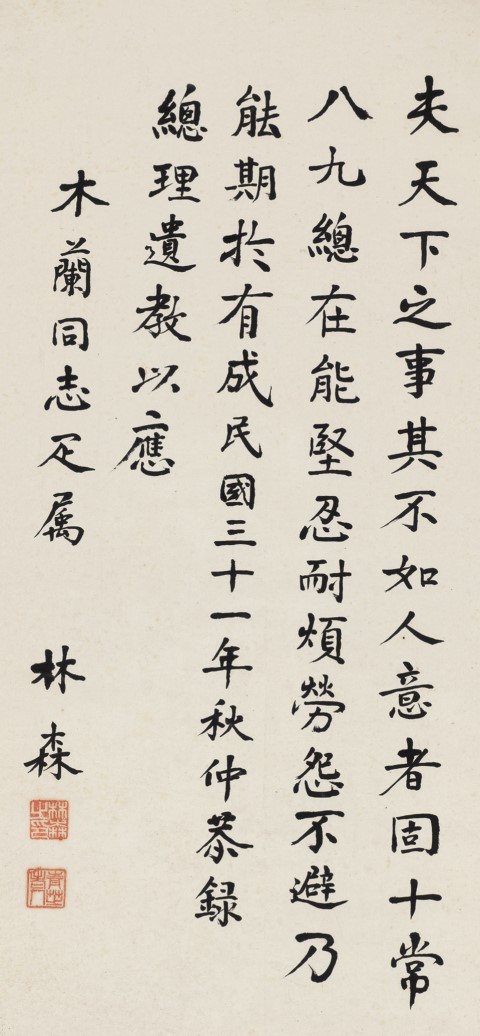 夫天下之事其不如人意者固十常
八九總在能堅忍耐煩勞怨不避乃
能期於有成民國三十一年秋仲恭録
總理遺教以應
木蘭同志疋属
林森